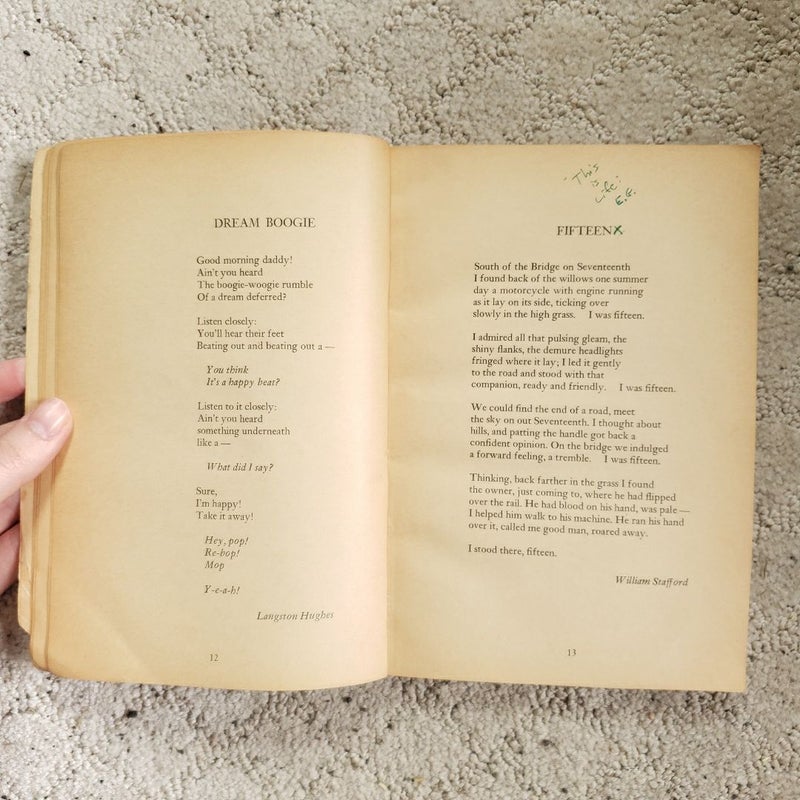 DREAM BOOGIE
Good morning daddy!
Ain't you heard
The boogie-woogie rumble
Of a dream deferred?
Listen closely:
You'll hear their feet
Beating out and beating out a —
You think
It's a happy beat?
Listen to it closely:
Ain't you heard
something underneath
like a —
What did I say?
Sure,
I'm happy!
Take it away!
Hey, pop!
Re-bop!
Mop
Y-e-a-h!
Langston Hughes
12
This
is
life.
FIFTEEN
South of the Bridge on Seventeenth
I found back of the willows one summer
day a motorcycle with engine running
as it lay on its side, ticking over
slowly in the high grass. I was fifteen.
I admired all that pulsing gleam, the
shiny flanks, the demure headlights
fringed where it lay; I led it gently
to the road and stood with that
companion, ready and friendly. I was fifteen.
We could find the end of a road, meet
the sky on out Seventeenth. I thought about
hills, and patting the handle got back a
confident opinion. On the bridge we indulged
a forward feeling, a tremble. I was fifteen.
Thinking, back farther in the grass I found
the owner, just coming to, where he had flipped
over the rail. He had blood on his hand, was pale —
I helped him walk to his machine. He ran his hand
over it, called me good man, roared away.
I stood there, fifteen.
William Stafford
13